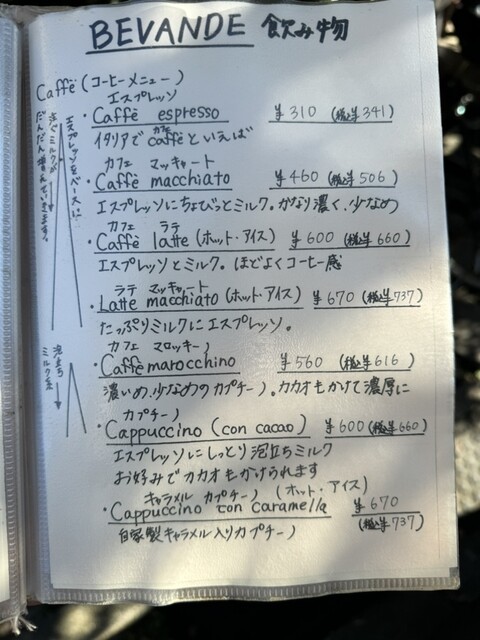 BEVANDE 飲み物
Caffè (コーヒーメニュー)
エスプレッソ
・Caffè espresso ¥310 (税込¥341)
カフェ
イタリアで caffèといえば
カフェ マッキャート
・Caffè macchiato ¥460 (税込¥506)
エスプレッソにちょびっとミルク。かなり濃く、少なめ
カフェ ラテ
・Caffè latte (ホット・アイス) ¥600 (税込¥660)
エスプレッソとミルク。ほどよくコーヒー感
ラテ マッキャート
・Latte macchiato (ホット・アイス) ¥670 (税込¥737)
たっぷりミルクにエスプレッソ。
カフェ マロッキーノ
・Caffè marocchino ¥560 (税込¥616)
濃いめ、少なめのカプチーノ。カカオもかけて濃厚に
カプチーノ
・Cappuccino (con cacao) ¥600 (税込¥660)
エスプレッソにしっとり泡立ちミルク
お好みでカカオもかけられます
キャラメル カプチーノ (ホット・アイス)
・Cappuccino con caramella ¥670
(税込¥737)
自家製キャラメル入りカプチーノ
エスプレッソをベースに
注ぐミルクが
だんだん増えていきます。
泡立ち
ミルク系